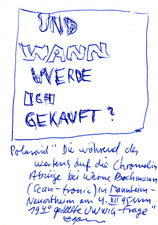 UND
WANN
WERDE
ICH
GEKAUFT?
Polaroid "Die während des
wartens auf die Chromalin
Abzüge bei Werne Bachmann
(Scan-tronic) in Mannheim-
Neuostheim am 4. XII 95 um
19 40 gestellte Frage"